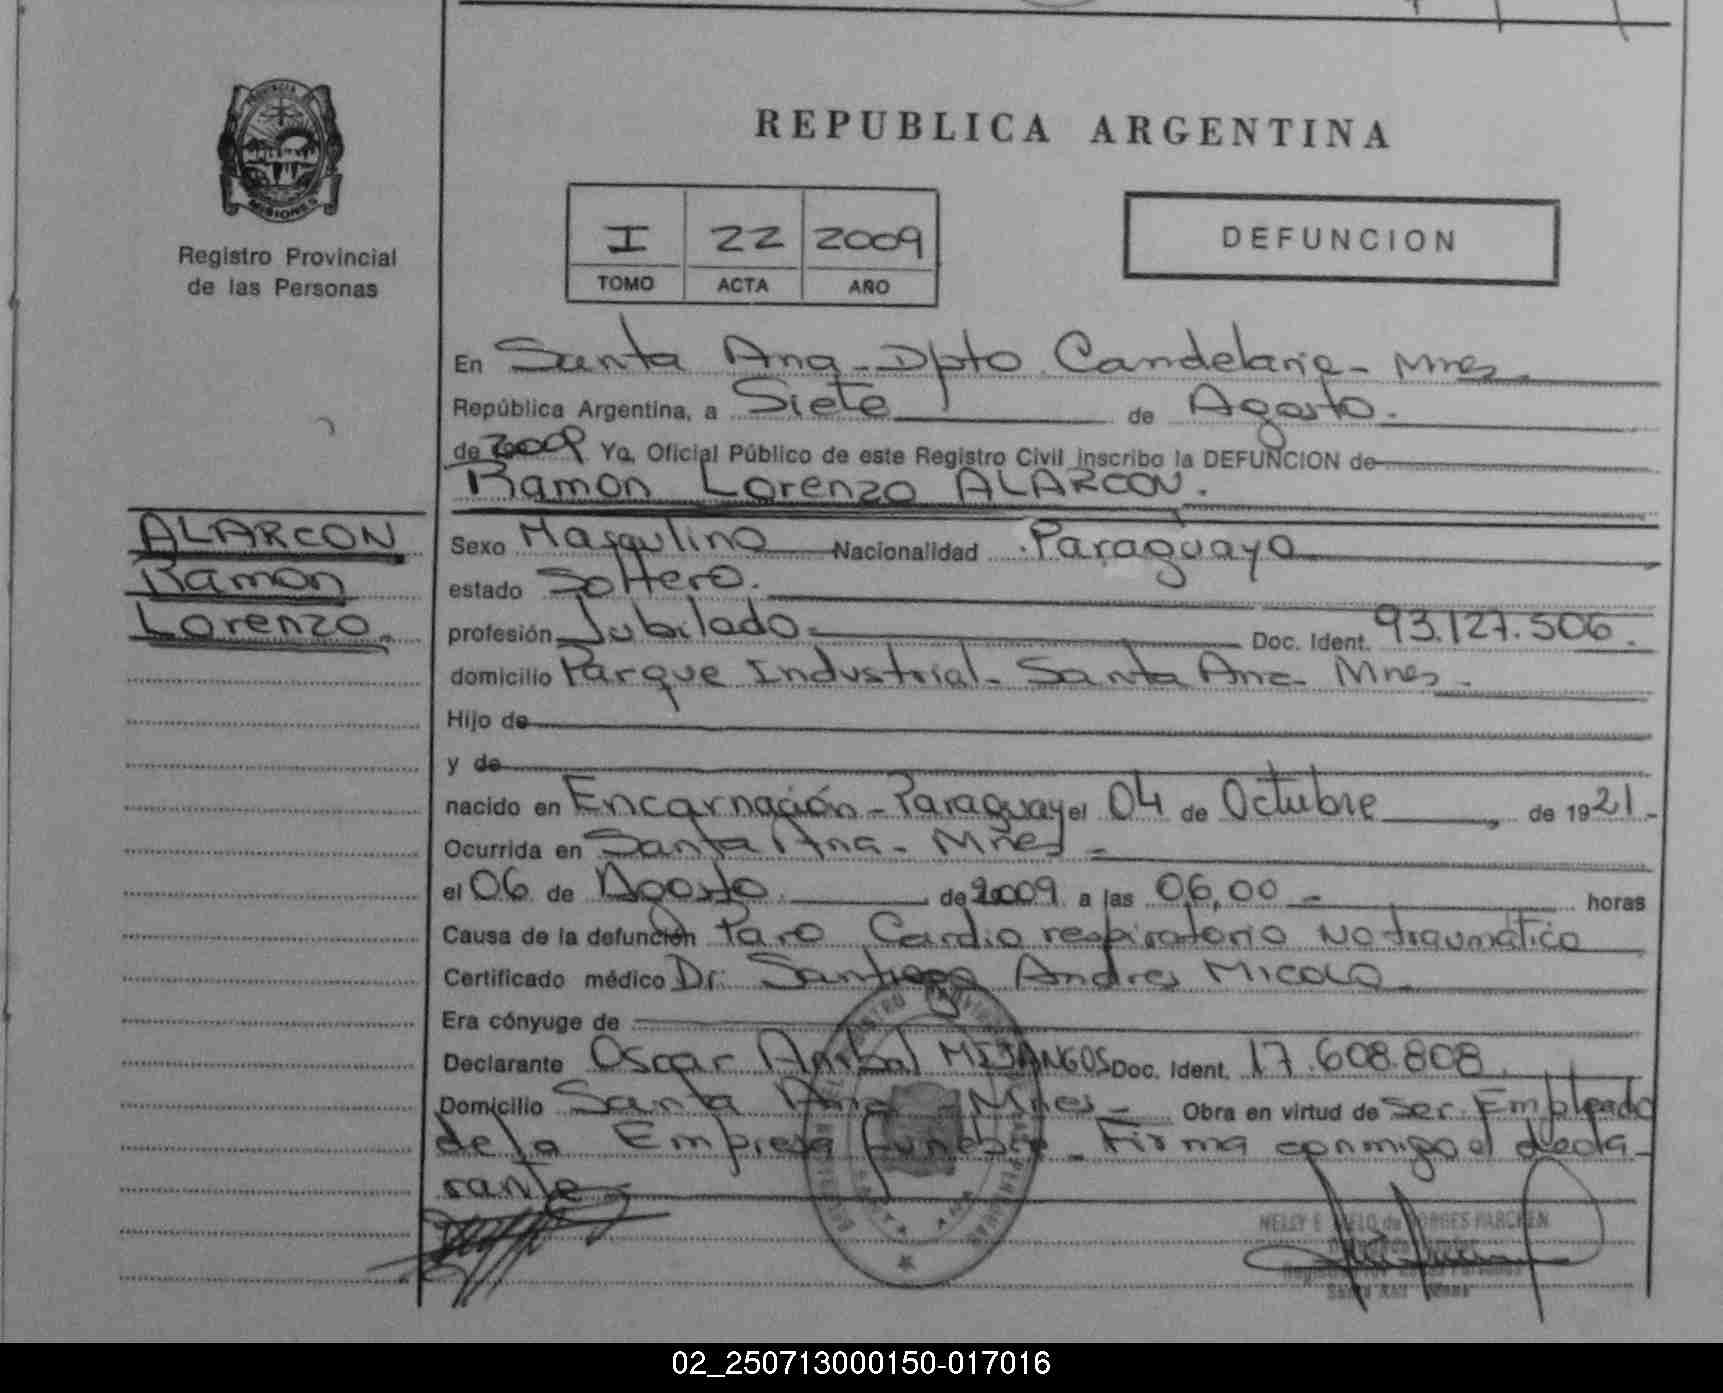 PROVINCIA
MISIONES
Registro Provincial
de las Personas
REPUBLICA ARGENTINA
I 22 2009
TOMO ACTA AÑO
DEFUNCION
En Santa Ana - Dpto Candelaria - Mnes.
República Argentina, a Siete de Agosto.
de 2009 Yo, Oficial Público de este Registro Civil inscribo la DEFUNCION de
Ramon Lorenzo ALARCON.
ALARCON
Ramon
Lorenzo.
Sexo Masculino Nacionalidad Paraguaya
estado Soltero.
profesión Jubilado. Doc. Ident. 93.127.506.
domicilio Parque Industrial - Santa Ana - Mnes -
Hijo de
y de
nacido en Encarnación - Paraguay el 04 de Octubre de 1921.
Ocurrida en Santa Ana - Mnes -
el 06 de Agosto de 2009 a las 06,00 - horas
Causa de la defunción Paro Cardio respiratorio No traumático
Certificado médico Dr. Santiago Andres
Era cónyuge de
Declarante Oscar Anibal MEJANGOS Doc. Ident. 17.608.808.
Domicilio Santa Ana - Mnes - Obra en virtud de Ser Empleado
de la Empresa funebre - Firma conmigo el decla-
rante
NELLY E. de BORGES
02_250713000150-017016